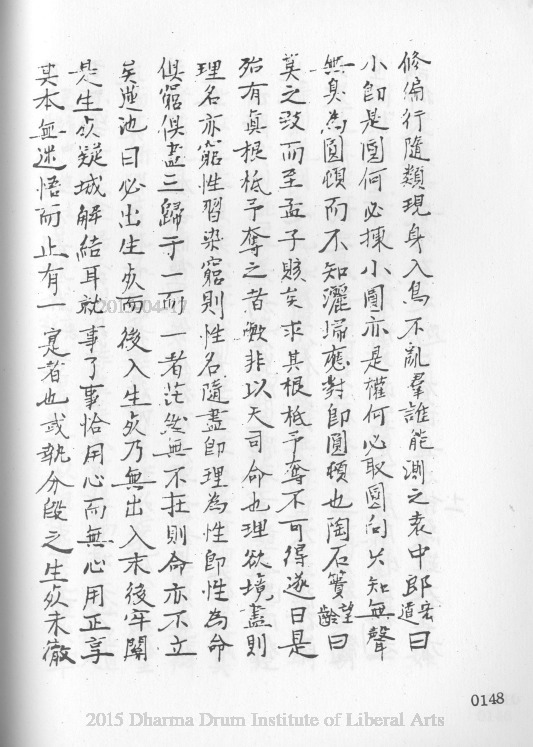 修偏行隨類現身入鳥不亂羣誰能測之袁中郎宏道曰
小卽是圓何必揀小圓亦是權何必取圓向只知無聲
無臭為圓頓而不知灑埽應對卽圓頓也陶石簣望齡曰
莫之致而至孟子賅矣求其根柢予奪不可得遂曰是
殆有真根柢予奪之者歟非以天司命也理欲境盡則
理名亦窮性習染窮則性名隨盡卽理為性卽性為命
俱窮俱盡三歸于一而一者茫然無不在則命亦不立
矣蓮池曰必出生死而後入生死乃無出入末後牢關
是生死疑城解結耳就事了事恰用心而無心用正享
其本無迷悟而止有一寔者也或執分段之生死未徹
0148
2015 Dharma Drum Institute of Liberal Arts